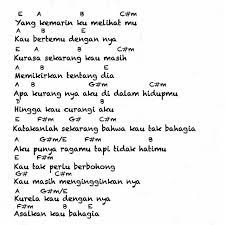 E A B C#m
Yang kemarin ku melihat mu
A B E
Kau bertemu dengan nya
E A B C#m
Kurasa sekarang kau masih
A B E
Memikirkan tentang dia
A B G# C#m
Apa kurang nya aku di dalam hidupmu
D B
Hingga kau curangi aku
E F#m G# C#m
Katakanlah sekarang bahwa kau tak bahagia
A G#m/E F#m B
Aku punya ragamu tapi tidak hatimu
E F#m
Kau tak perlu berbohong
G# C#m
Kau masih menginginkan nya
A G#m/E
Kurela kau dengan nya
F#m B E
Asalkan kau bahagia